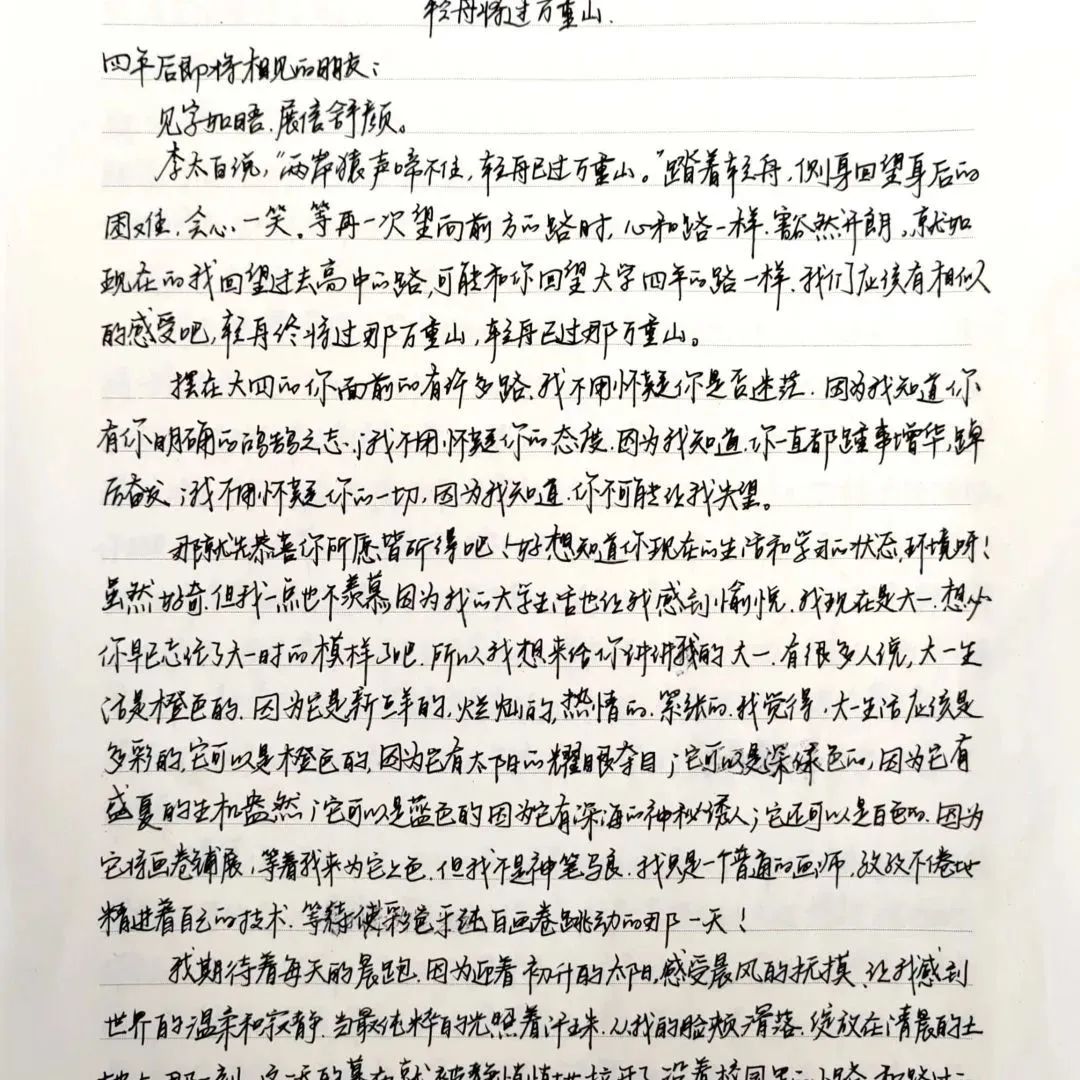 轻舟将过万重山.
四年后即将相见的朋友：
见字如晤，展信舒颜。
李太白说，“两岸猿声啼不住，轻舟已过万重山。”踏着轻舟，侧身回望身后的
困难，会心一笑。等再一次望向前方的路时，心和路一样，豁然开朗，就如
现在的我回望过去高中的路，可能和你回望大学四年的路一样，我们应该有相似
的感受吧，轻舟终将过那万重山，轻舟已过那万重山。
摆在大四的你面前的有许多路，我不用怀疑你是否迷茫，因为我知道你
有你明确的鸿鹄之志；我不用怀疑你的态度，因为我知道，你一直都踵事增华，踔
厉奋发；我不用怀疑你的一切，因为我知道，你不可能让我失望。
那就先恭喜你所愿皆所得吧！好想知道你现在的生活和学习的状态，环境呀！
虽然好奇，但我一点也不羡慕，因为我的大学生活也让我感到愉悦，我现在是大一，想必
你早已忘住了大一时的模样了吧，所以我想来给你讲讲我的大一，有很多人说，大一生
活是橙色的，因为它是新鲜的，灿烂的，热情的，紧张的，我觉得，大一生活应该是
多彩的，它可以是橙色的，因为它有太阳的耀眼夺目；它可以是深绿色的，因为它有
盛夏的生机盎然；它可以是蓝色的因为它有深海的神秘诱人；它还可以是白色的，因为
它将画卷铺展，等着我来为它上色，但我不是神笔马良，我只是一个普通的画师，孜孜不倦地
精进着自己的技术，等待使彩色乐迹自画卷跳动的那一天！
我期待着每天的晨跑，因为迎着初升的太阳，感受晨风的抚摸，让我感到
世界的温柔和寂静，当最纯粹的光照着汗珠，从我的脸颊滑落，绽放在清晨的土